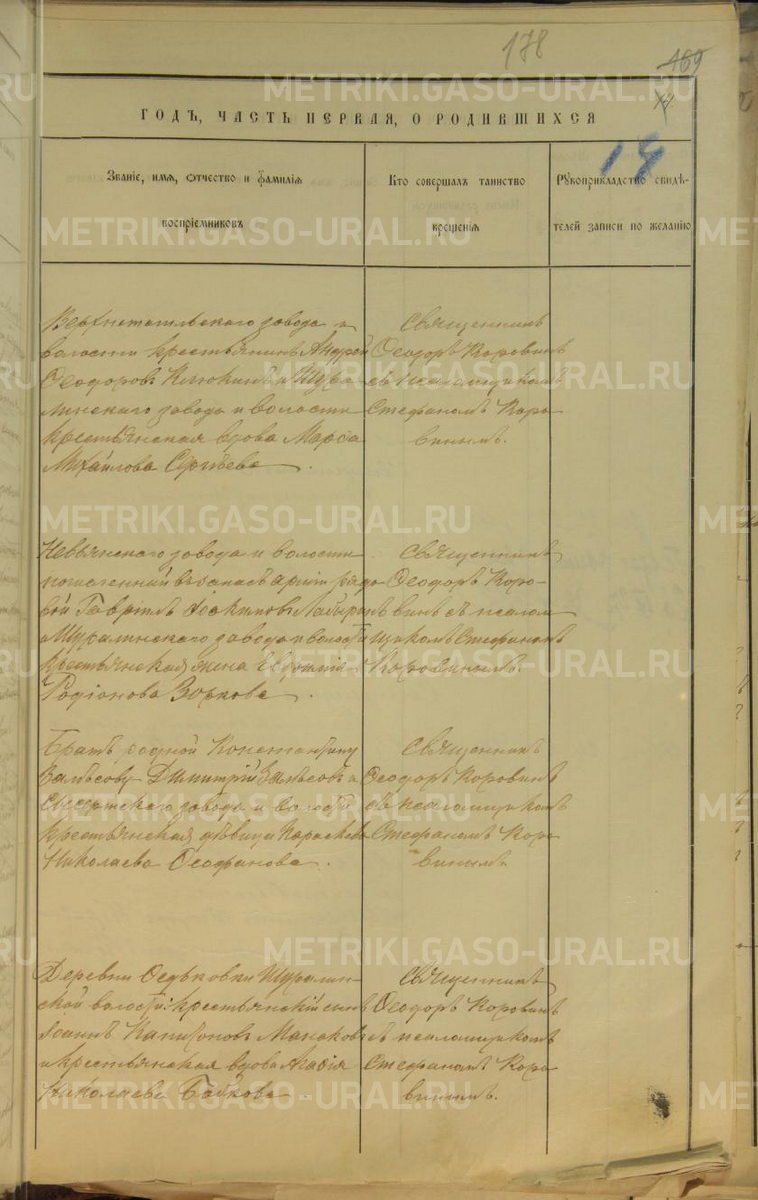 178
169
14
ГОДЪ, ЧАСТЬ ПЕРВАЯ, О РОДИВШИХСЯ
Званіе, имя, отчество и фамилія
воспріемниковъ
Кто совершалъ таинство
крещенія
Рукоприкладство свидѣ-
телей записи по желанію
Верхнетагильскаго завода и
волости крестьянинъ Андрей
Ѳеодоровъ Клюкинъ и Шура-
линскаго завода и волости
крестьянская вдова Марѳа
Михайлова Сергѣева.
Священникъ
Ѳеодоръ Коровинъ
съ псаломщикомъ
Стефаномъ Коро-
винымъ.
Невьянскаго завода и волости
въ запасъ арміи рядо-
вой Гавріилъ
и Шуралинскаго завода и волости
крестьянская жена
Родіонова Зоркова.
Священникъ
Ѳеодоръ Коро-
винъ съ псалом-
щикомъ Стефаномъ
Коровинымъ.
Братъ родной Константину
Димитрій и
Сысертскаго завода и волости
крестьянская дѣвица Параскева
Николаева Ѳеофанова.
Священникъ
Ѳеодоръ Коровинъ
съ псаломщикомъ
Стефаномъ Коро-
винымъ.
Деревни Ѳедьковки Шуралин-
ской волости: крестьянскій сынъ
Іоаннъ Капитоновъ Манаковъ
и крестьянская вдова
Николаева Бабкова.
Священникъ
Ѳеодоръ Коровинъ
съ псаломщикомъ
Стефаномъ Коро-
винымъ.
METRIKI.GASO-URAL.RU